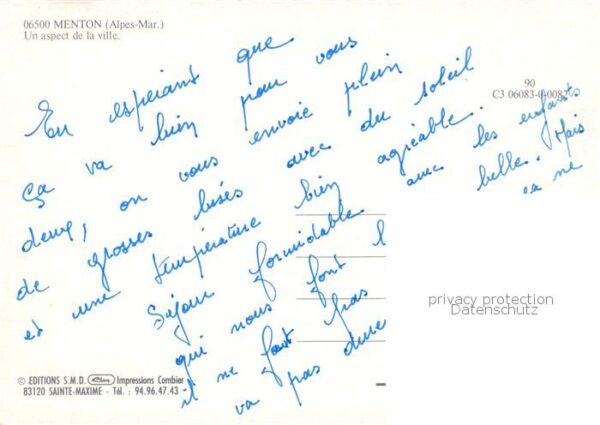 06500 MENTON (Alpes-Mar.)
Un aspect de la ville.
90
C3 06083-0-0082
En espérant que
ça va bien pour vous
deux, on vous envoie plein
de grosses bises avec du soleil
et une température bien agréable.
Séjour formidable avec les enfants
qui nous font l belle. Mais
il ne faut pas ça ne
va pas dure
privacy protection
Datenschutz
© EDITIONS S.M.D. Impressions Combier
83120 SAINTE-MAXIME - Tél. : 94.96.47.43